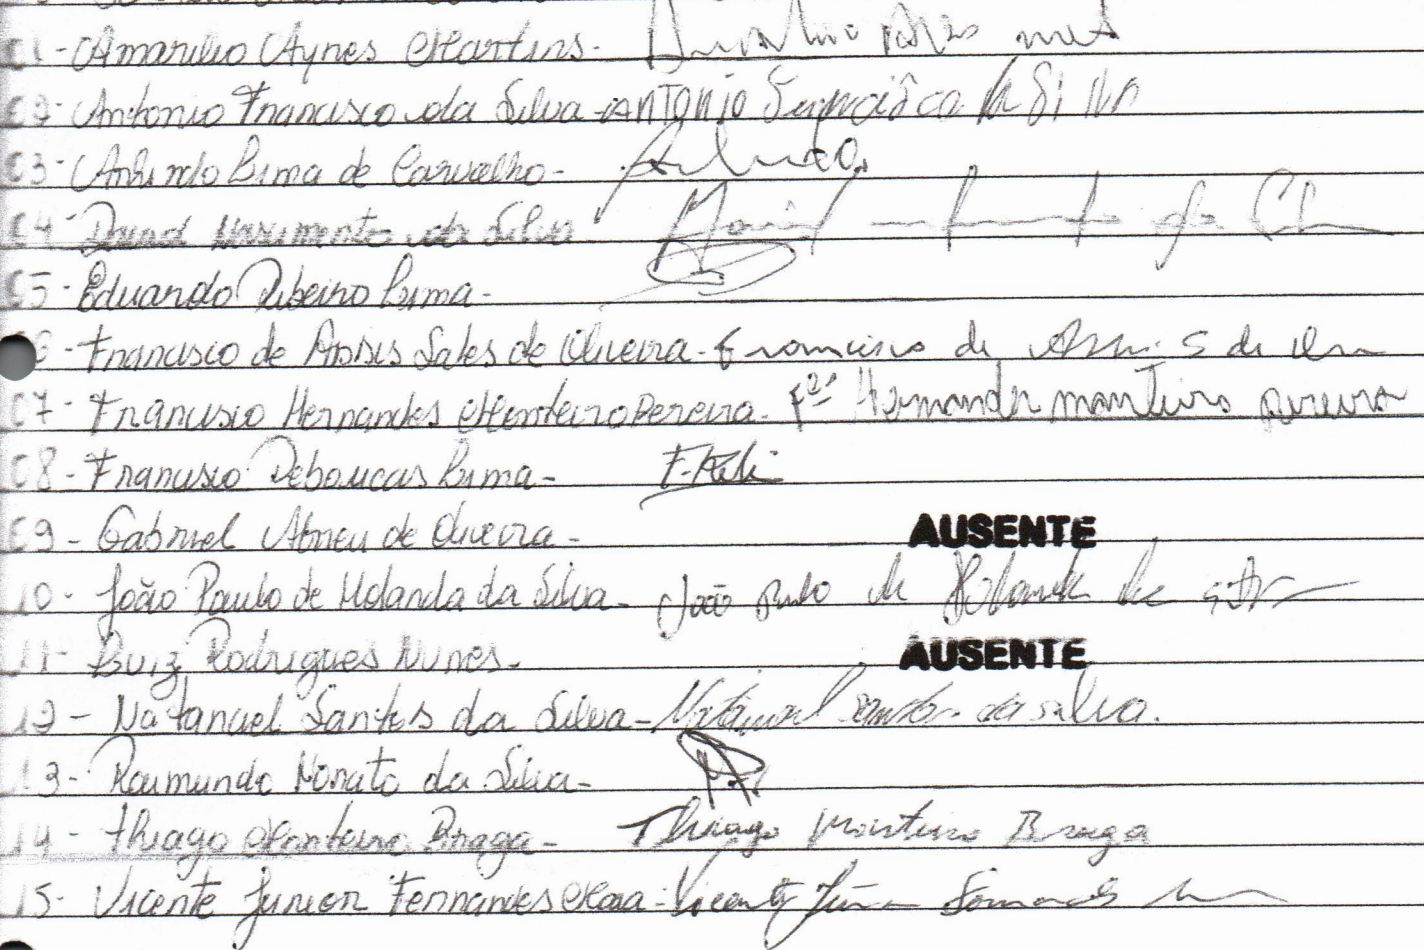 01- Amarilio Aynes Martins-
02- Antonio Francisco da Silva- ANTONIO
03- Arlindo Lima de Carvalho-
04- David Nascimento da Silva
05- Eduardo Ribeiro Lima-
06- Francisco de Assis Sales de Oliveira- Francisco de Assis S de
07- Francisco Hernandes Monteiro Pereira- Fco Hernandes Monteiro Pereira
08- Francisco Reboucas Lima-
09- Gabriel Abreu de Oliveira- AUSENTE
10- João Paulo de Holanda da Silva- João Paulo de Holanda da Silva
11- Luiz Rodrigues Nunes- AUSENTE
12- Natanael Santos da Silva- Natanael Santos da Silva.
13- Raimundo Nonato da Silva-
14- Thiago Monteiro Braga- Thiago Monteiro Braga
15- Vicente Junior Fernandes Maia- Vicente Júnior Fernandes